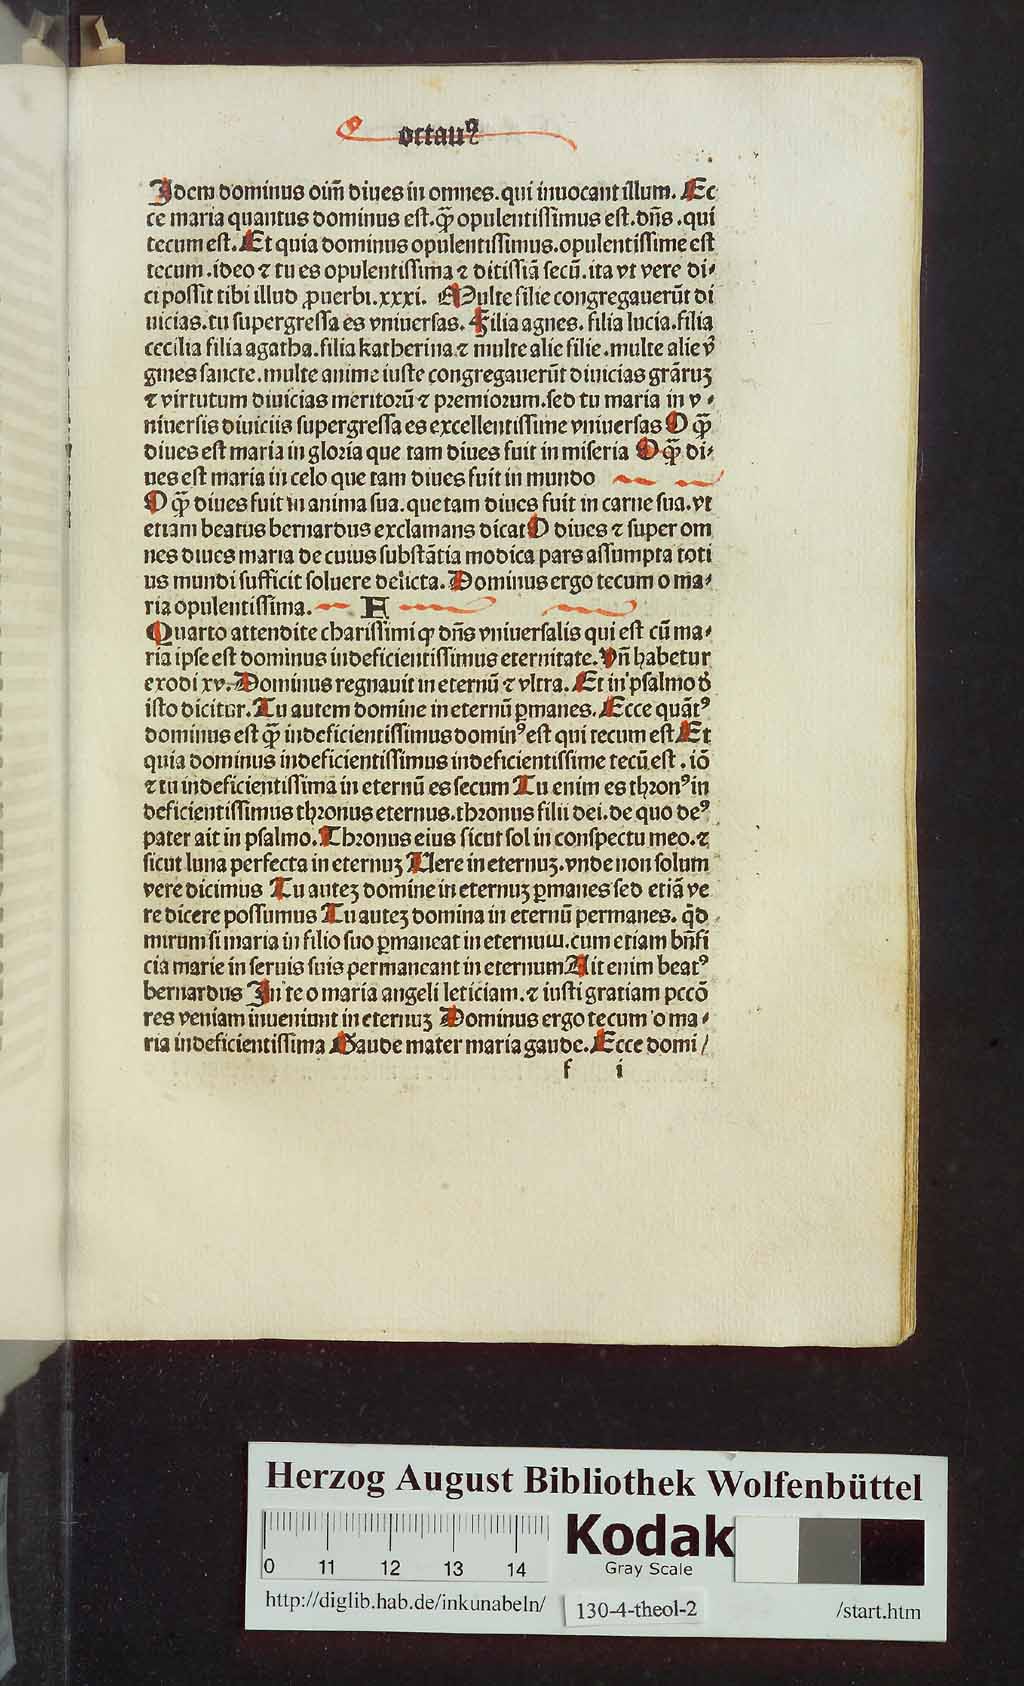 octauꝰ
Idem dominus oim̄ diues in omnes. qui inuocant illum. Ec
ce maria quantus dominus est. ꝙ̄ opulentissimus est. dn̄s .qui
tecum est. Et quia dominus opulentissimus. opulentissime est
tecum .ideo ⁊ tu es opulentissima ⁊ ditissiā secū. ita vt vere di⸗
ci possit tibi illud ꝓuerbi. xxxi. Multe filie congregauerūt di
uicias. tu supergressa es vniuersas. Filia agnes. filia lucia. filia
cecilia filia agatha. filia katherina ⁊ multe alie filie .multe alie v̄
gines sancte. multe anime iuste congregauerūt diuicias grāruʒ
⁊ virtutum diuicias meritorū ⁊ premiorum. sed tu maria in v⸗
niuersis diuiciis supergressa es excellentissime vniuersas O ꝙ̄
diues est maria in gloria que tam diues fuit in miseria O ꝙ̄ di⸗
ues est maria in celo que tam diues fuit in mundo
O ꝙ̄ diues fuit in anima sua. que tam diues fuit in carne sua. vt
etiam beatus bernardus exclamans dicat O diues ⁊ super om
nes diues maria de cuius substātia modica pars assumpta toti
us mundi sufficit soluere delicta. Dominus ergo tecum o ma⸗
ria opulentissima. F
Quarto attendite charissimi ꝙ dn̄s vniuersalis qui est cū ma⸗
ria ipse est dominus indeficientissimus eternitate. Vn̄ habetur
exodi xv. Dominus regnauit in eternū ⁊ vltra. Et in psalmo d̄
isto dicitur. Tu autem domine in eternū ꝑmanes. Ecce quātꝰ
dominus est ꝙ̄ indeficientissimus dominꝰ est qui tecum est Et
quia dominus indeficientissimus indeficientissime tecū est . iō
⁊ tu indeficientissima in eternū es secum Tu enim es thronꝰ in
deficientissimus thronus eternus. thronus filii dei. de quo deꝰ
pater ait in psalmo. Thronus eius sicut sol in conspectu meo. ⁊
sicut luna perfecta in eternuʒ Uere in eternuʒ. vnde non solum
vere dicimus Tu auteʒ domine in eternuʒ ꝑmanes sed etiā ve
re dicere possumus Tu auteʒ domina in eternū permanes. qd̄
mirum si maria in filio suo ꝑmaneat in eternum. cum etiam bn̄fi
cia marie in seruis suis permaneant in eternum Ait enim beatꝰ
bernardus In te o maria angeli leticiam. ⁊ iusti gratiam pccō
res veniam inueniunt in eternuʒ Dominus ergo tecum o ma⸗
ria indeficientissima Gaude mater maria gaude. Ecce domi/
f i
Herzog August Bibliothek Wolfenbüttel
0 11 12 13 14
Kodak
Gray Scale
http://diglib.hab.de/inkunabeln/ 130-4-theol-2 /start.htm